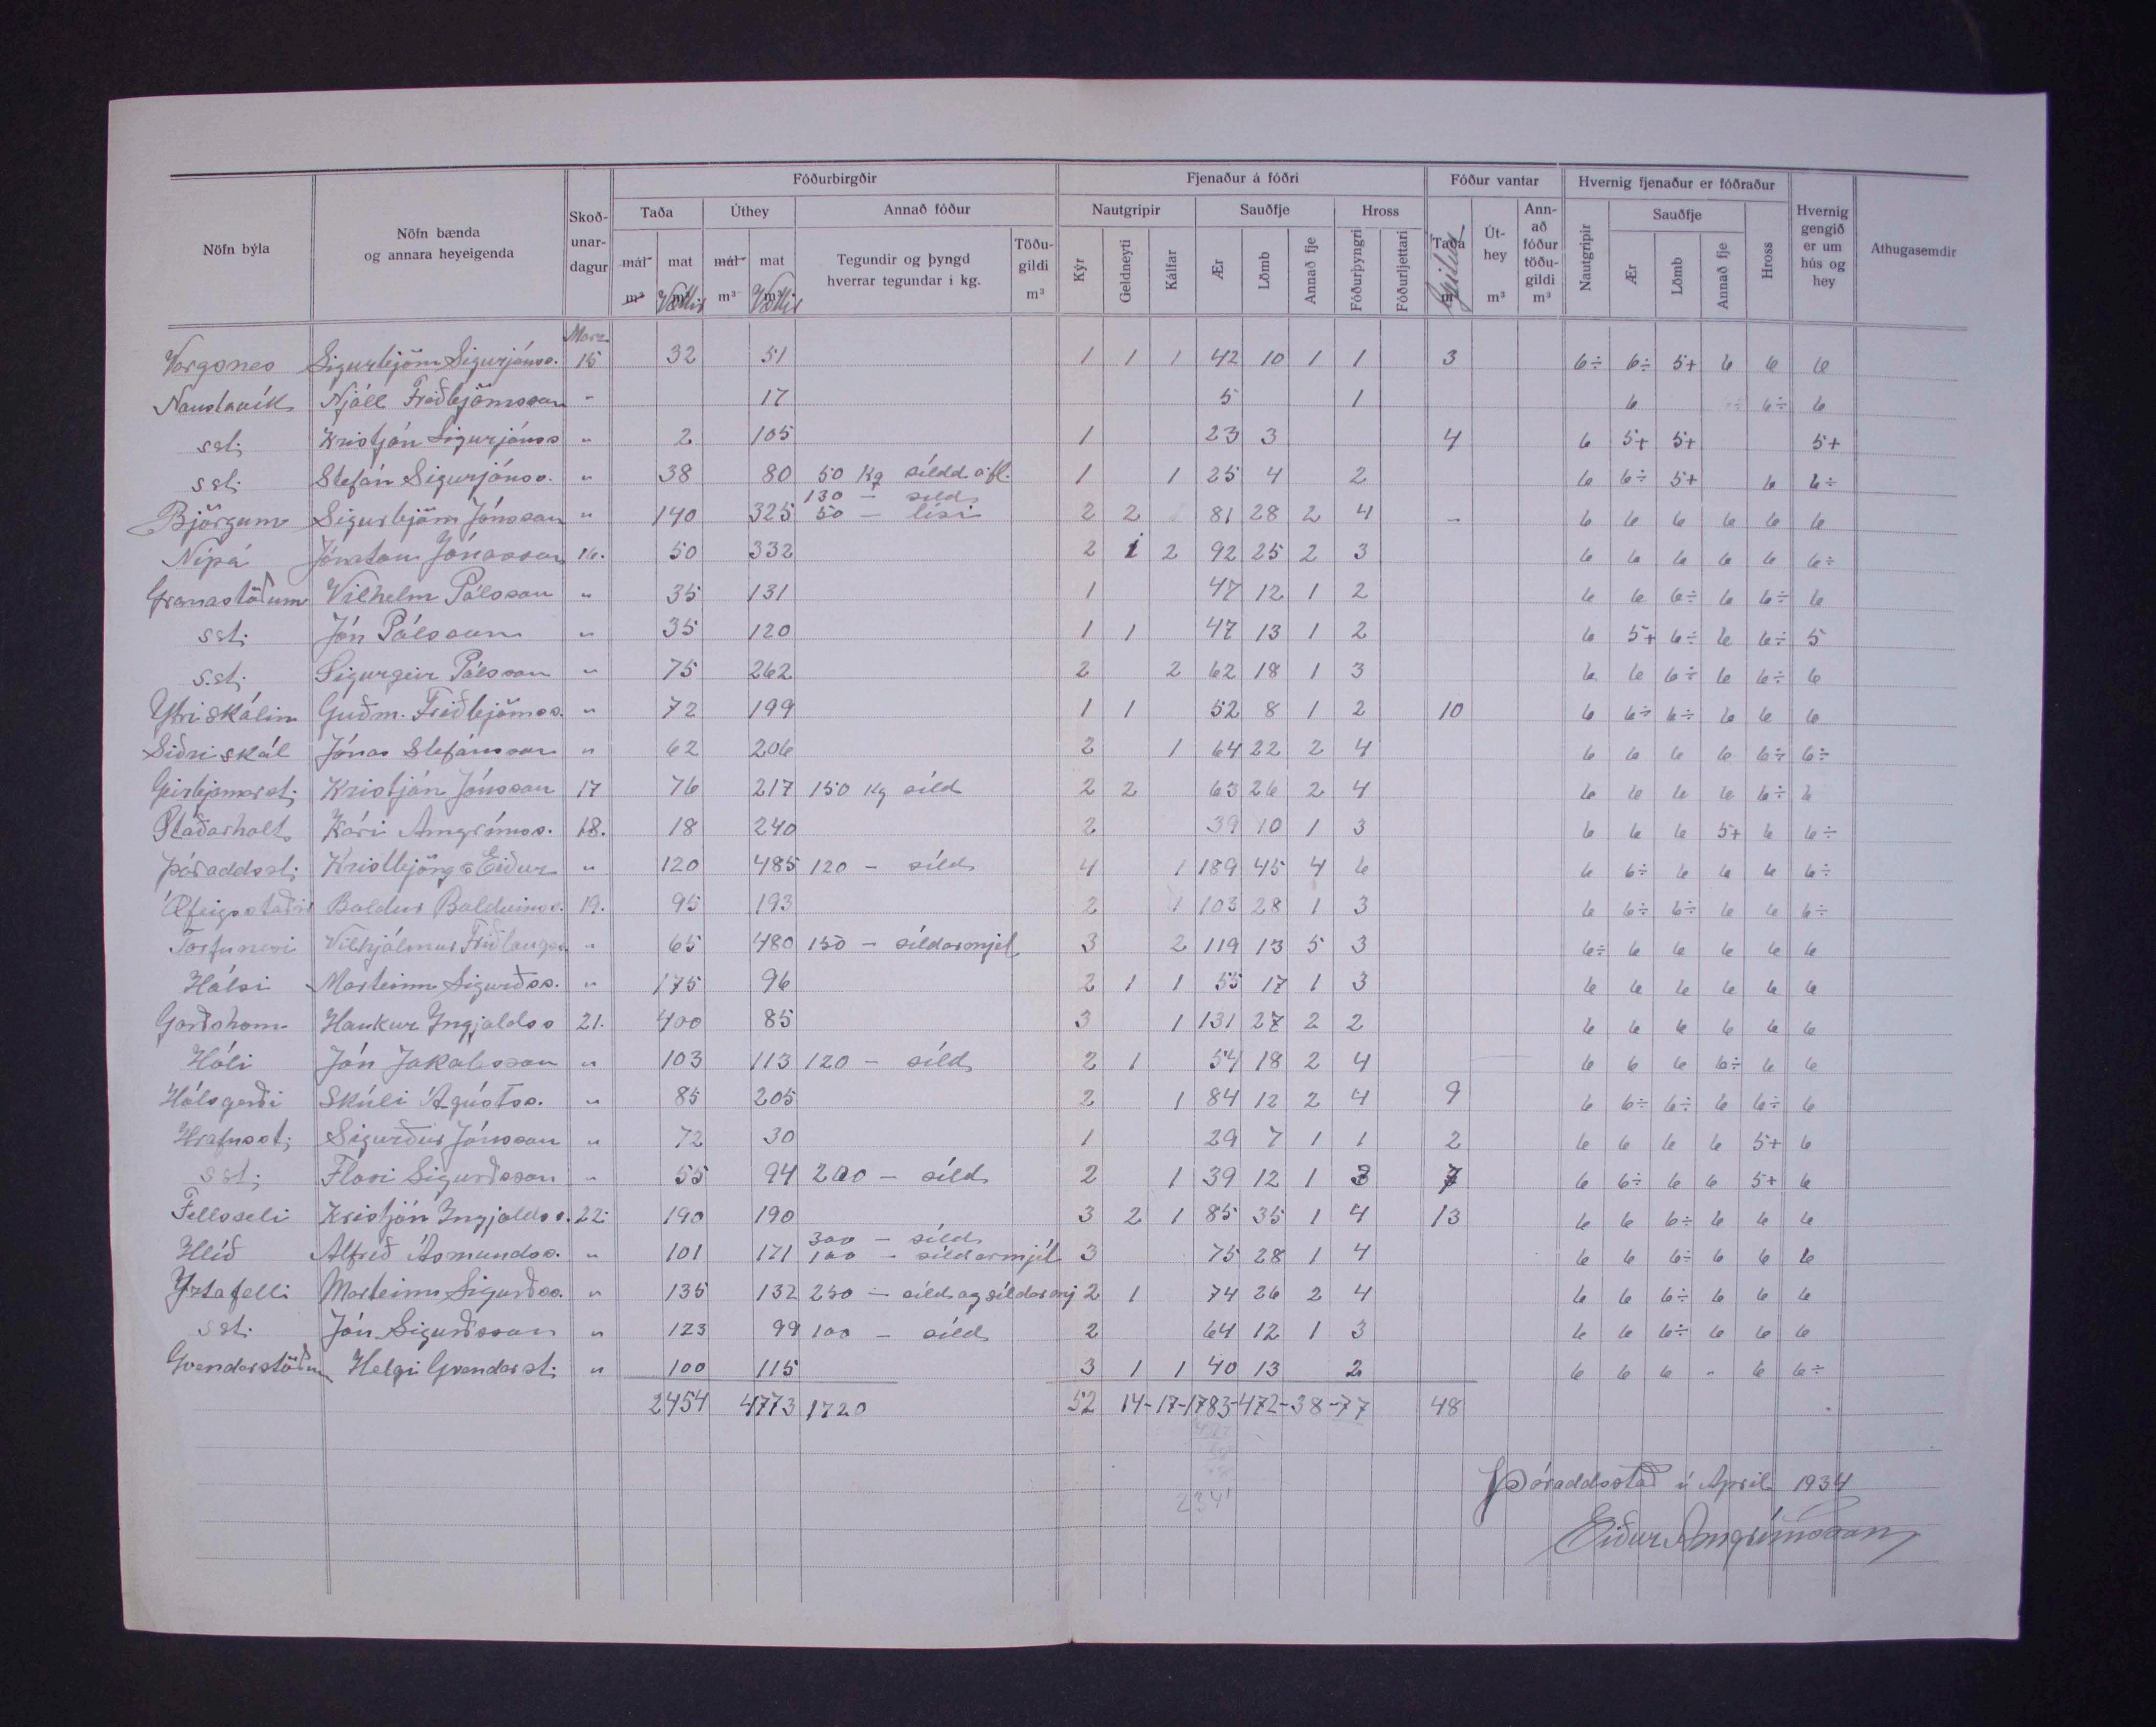 Fóðurbirgðir Fjenaður á fóðri Fóður vantar Hvernig fjenaður er fóðraður
Nöfn býla Nöfn bænda og annara heyeigenda Skoðunardagur Taða Úthey Annað fóður Nautgripir Sauðfje Hross Taða m³ Úthey m³ Annað fóður töðugildi m³ Nautgripir Sauðfje Hross Hvernig gengið er um hús og hey Athugasemdir
mál m³ mat m³ mál m³ mat m³ Tegundir og þyngd hverrar tegundar í kg. Töðugildi m³ Kýr Geldneyti Kálfar Ær Lömb Annað fje Fóðurþyngri Fóðurljettari Ær Lömb Annað fje
Vættir Vættir Gjilda
Marz
Vargsnes Sigurbjörn Sigurjónss. 15 32 51 1 1 1 42 10 1 1 3 6÷ 6÷ 5+ 6 6 6
Naustavík Njáll Friðbjörnsson " 17 5 1 6 6÷ 6
sst. Kristján Sigurjónss " 2 105 1 23 3 4 6 5+ 5+ 5+
sst. Stefán Sigurjónss. " 38 80 50 kg síld 1 1 25 4 2 6 6÷ 5+ 6 6÷
130 - síld
Björgum Sigurbjörn Jónsson " 140 325 50 - lísi 2 2 81 28 2 4 - 6 6 6 6 6 6
Nípá Jónatan Jónasson 16. 50 332 2 1 2 92 25 2 3 6 6 6 6 6 6÷
Granastöðum Vilhelm Pálsson " 35 131 1 47 12 1 2 6 6 6÷ 6 6÷ 6
sst. Jón Pálsson " 35 120 1 1 47 13 1 2 6 5+ 6÷ 6 6÷ 5
s.st. Sigurgeir Pálsson " 75 262 2 2 62 18 1 3 6 6 6÷ 6 6÷ 6
Ytriskálin Guðm. Friðbjörnss. " 72 199 1 1 52 8 1 2 10 6 6÷ 6÷ 6 6 6
Siðriskál Jónas Stefánsson " 62 206 2 1 64 22 2 4 6 6 6 6 6÷ 6÷
Geirbjarnarst. Kristján Jónsson 17 76 217 150 kg síld 2 2 63 26 2 4 6 6 6 6 6÷ 6
Staðarholt Kári Arngrímss. 18. 18 240 2 39 10 1 3 6 6 6 5+ 6 6÷
Þóraddsst. Kristbjörg & Eiður " 120 485 120 - síld 4 1 189 45 4 6 6 6÷ 6 6 6 6÷
Ófeigsstaðir Baldur Balduinss. 19. 95 193 2 1 103 28 1 3 6 6÷ 6÷ 6 6 6÷
Torfunesi Vilhjálmur Friðlaugss. " 65 480 150 - síldarmjel 3 2 119 13 5 3 6÷ 6 6 6 6 6
Hálsi Marteinn Sigurðss. " 175 96 2 1 1 55 17 1 3 6 6 6 6 6 6
Garðshorn Haukur Ingjaldss 21. 400 85 3 1 131 27 2 2 6 6 6 6 6 6
Hóli Jón Jakobsson " 103 113 120 - síld 2 1 54 18 2 4 6 6 6 6÷ 6 6
Hálsgerði Skúli Ágústss. " 85 205 2 1 84 12 2 4 9 6 6÷ 6÷ 6 6÷ 6
Hrafnsst. Sigurður Jónsson " 72 30 1 29 7 1 1 2 6 6 6 6 5+ 6
sst. Flosi Sigurðsson " 55 94 200 - síld 2 1 39 12 1 3 7 6 6÷ 6 6 5+ 6
Fellsseli Kristján Ingjaldss. 22. 190 190 3 2 1 85 35 1 4 13 6 6 6÷ 6 6 6
300 - síld
Hlíð Alfreð Ásmundss. " 101 171 100 - síldarmjél 3 75 28 1 4 6 6 6÷ 6 6 6
Yztafelli Marteinn Sigurðss. " 135 132 250 - síld og síldarmj 2 1 74 26 2 4 6 6 6÷ 6 6 6
sst. Jón Sigurðsson " 123 99 100 - síld 2 64 12 1 3 6 6 6÷ 6 6 6
Gvendarstöðum Helgi Gvendarst. " 100 115 3 1 1 40 13 2 6 6 6 " 6 6÷
2454 4773 1720 52 14-17-1783-472-38-77 48
2341
Þóraddsstað í Apríl 1934
Eiður Arngrímsson